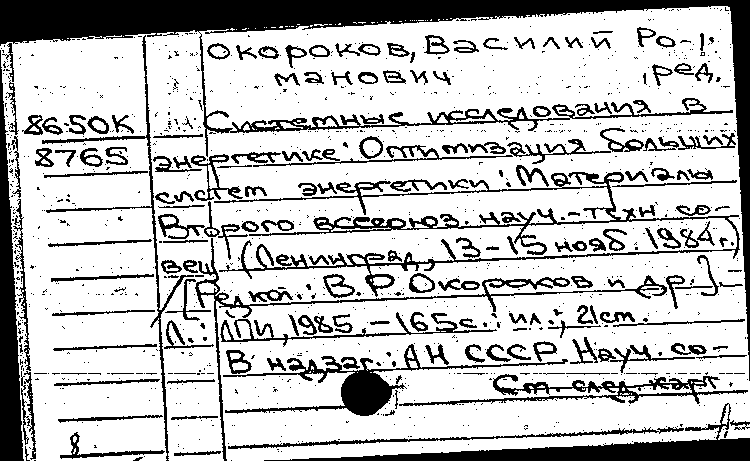 Окороков, Василий Ро-
манович , ред.
86.50К Системные исследования в
8765 энергетике: Оптимизация больших
систем энергетики: Материалы
Второго всесоюз. науч.-техн. со-
вещ. (Ленинград, 13-15 нояб. 1984 г.)
[Редкол.: В.Р. Окороков и др.].-
Л.: ЛПИ, 1985. - 165 с.: ил.; 21 см.
В надзаг.: АН СССР. Науч. со-
См. след. карт.
8